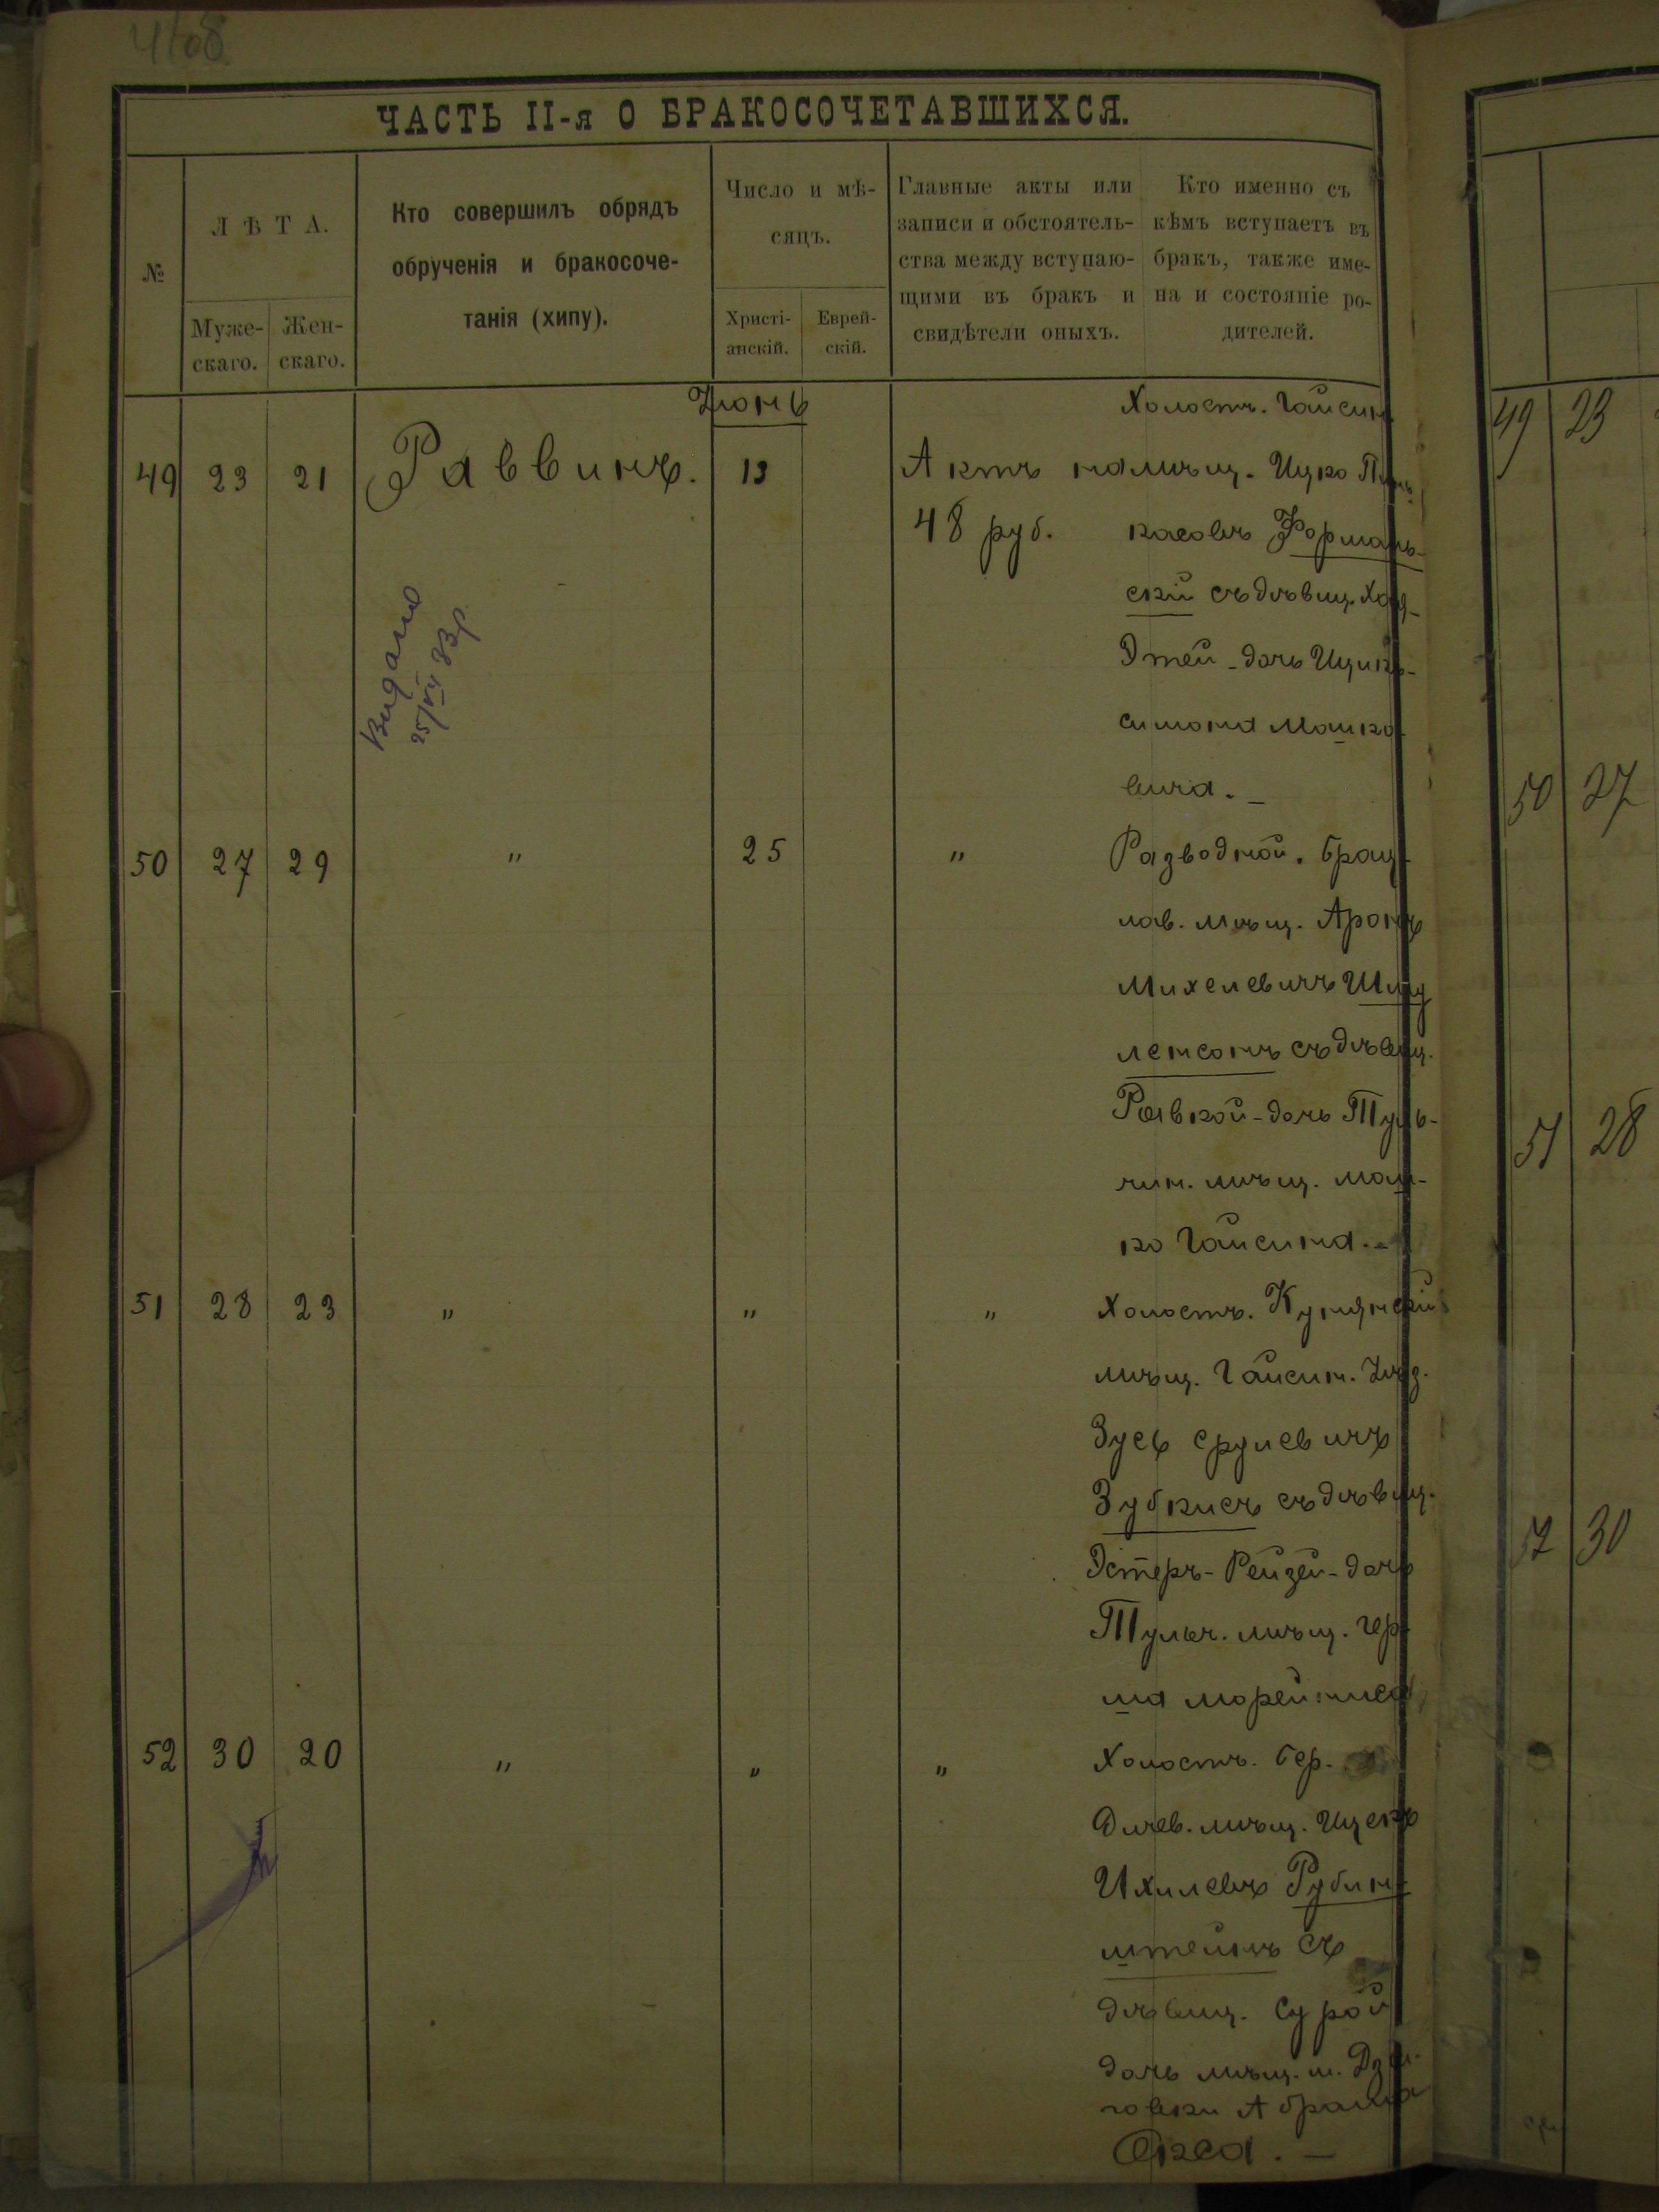 4108
ЧАСТЬ II-я О БРАКОСОЧЕТАВШИХСЯ.
№
ЛѢТА.
Муже-
скаго.
Жен-
скаго.
Кто совершилъ обрядъ
обрученія и бракосоче-
танія (хипу).
Число и мѣ-
сяцъ.
Христі-
анскій.
Еврей-
скій.
Главные акты или
записи и обстоятель-
ства между вступаю-
щими въ бракъ и
свидѣтели оныхъ.
Кто именно съ
кѣмъ вступаетъ въ
бракъ, также име-
на и состояніе ро-
дителей.
Июнь
49 23 21 Раввинъ. 13
Актъ на
48 руб.
Холостъ. Гайсин
мѣщ. Ицко
касовъ Формань-
скій съ дѣвиц.
Этей-дочь Ицикъ-
симона Машко
вича. -
Видано
50 27 29 " 25 "
Разводной. Брац
лав. мѣщ. Аронъ
Михелевичъ
ленсонъ съ дѣвиц.
Ривкой-дочь Туль-
чин. мѣщ. Мош-
ко Гайсина. -
51 28 23 " " "
Холостъ. Кунянскій
мѣщ. Гайсин. Уѣз.
Зусь Срулевичъ
Зубкисъ съ дѣвиц.
Эстеръ-Рейзей-дочь
Тульч. мѣщ. Гер
ша
52 30 20 " " "
Холостъ. Бер-
дичев. мѣщ. Ицекъ
Ихилевъ Рубин
штейнъ съ
дѣвиц. Сурой
дочь мѣщ. м.
Абрама
49 23
50 27
51 28
52 30